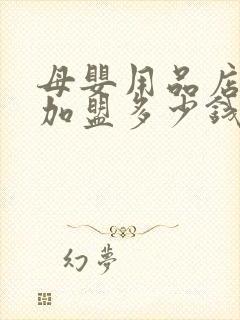 母嬰用品店
加盟多少錢
幻夢